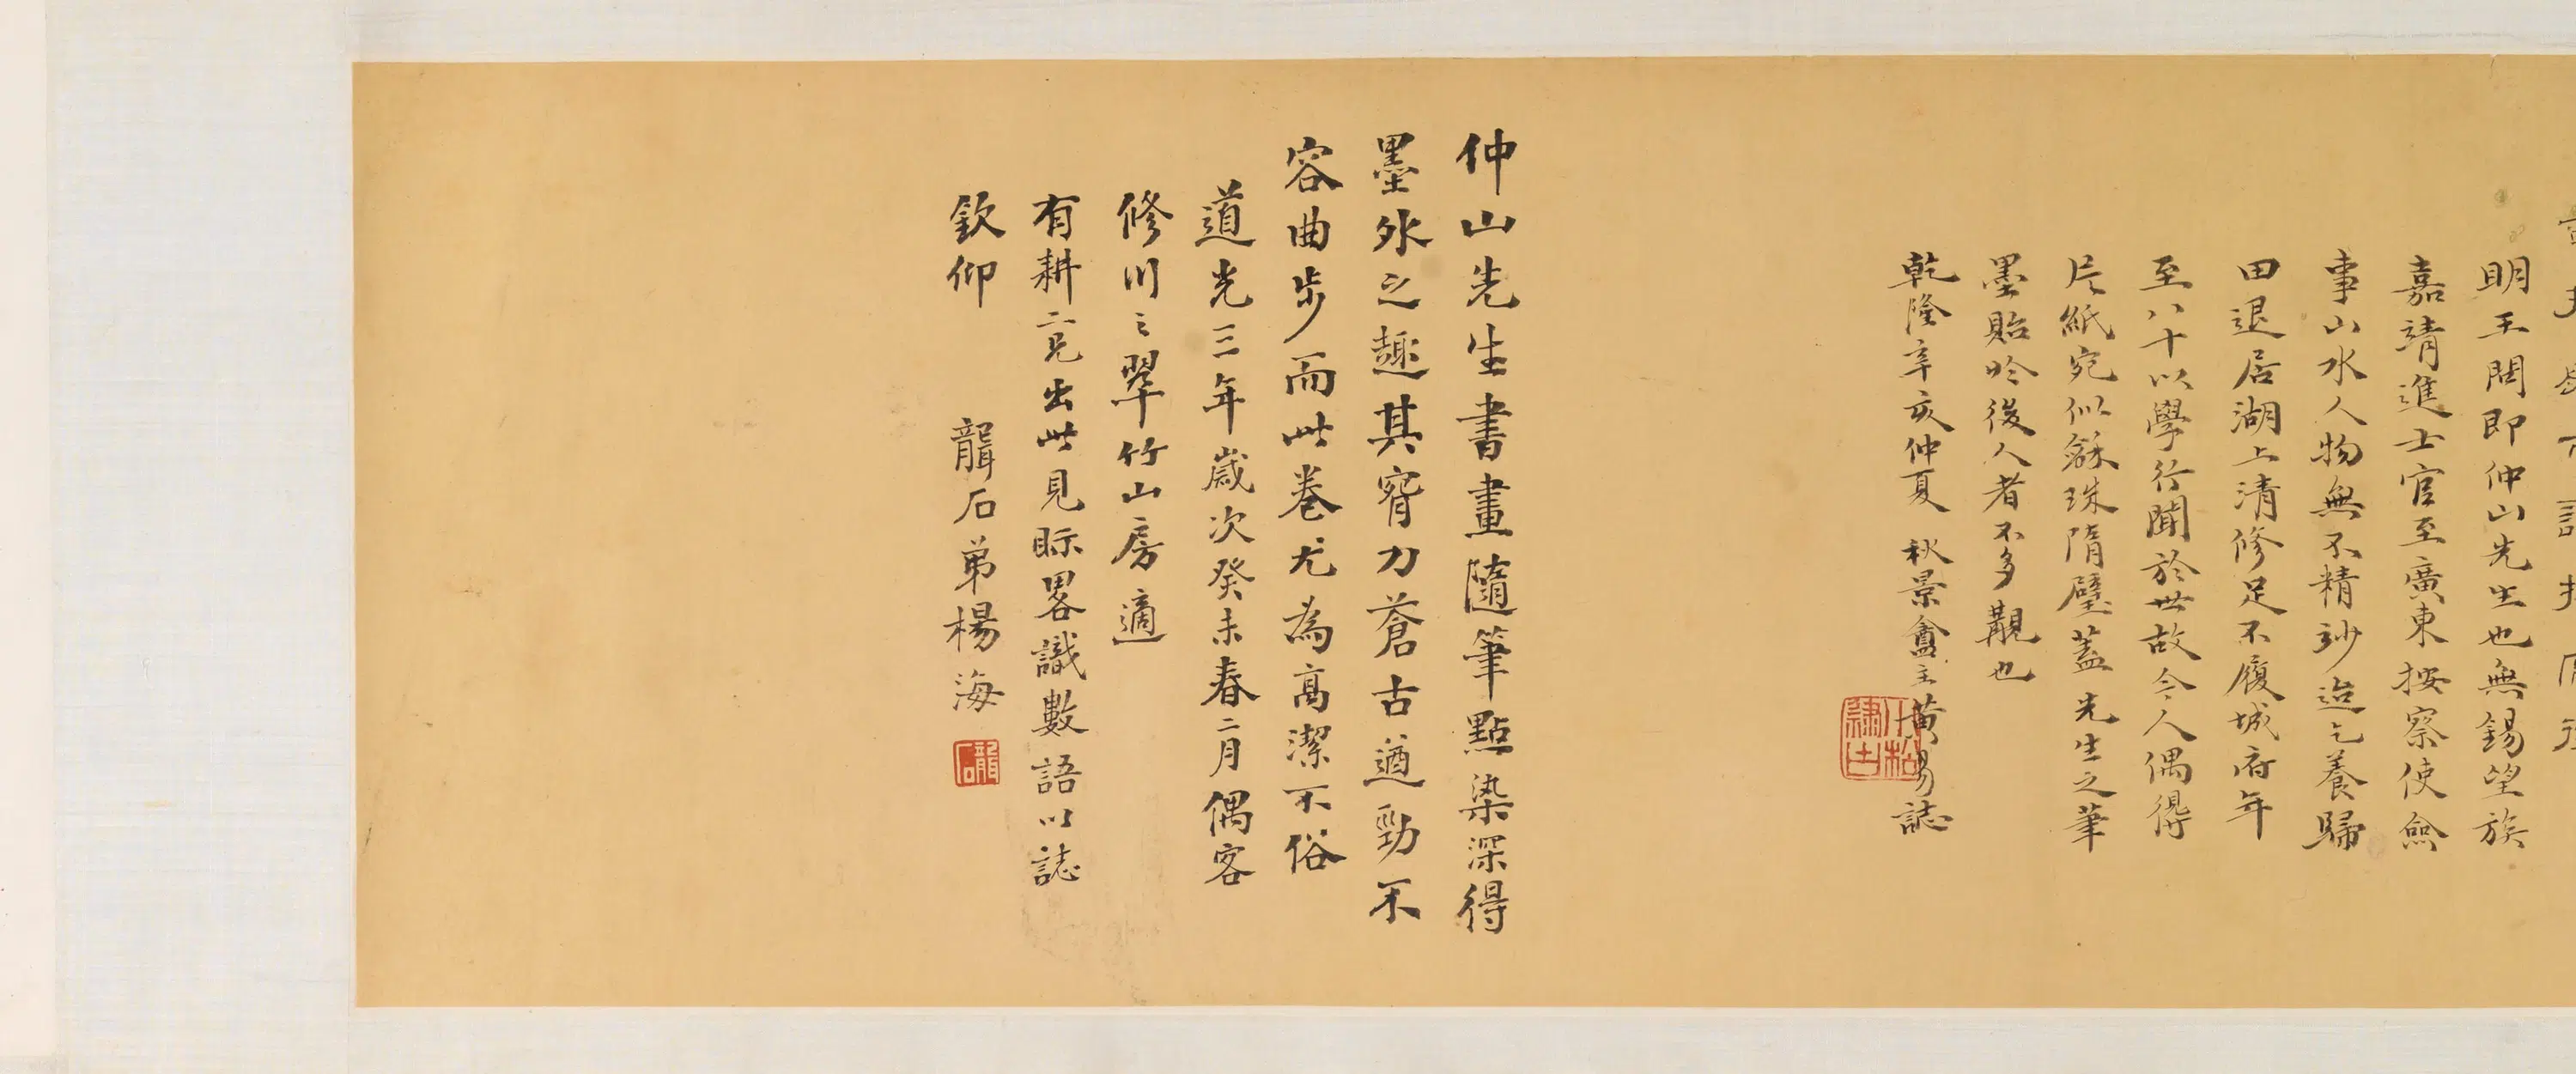 明王問即仲山先生也無錫望族
嘉靖進士官至廣東按察使僉
事山水人物無不精妙迨乞養歸
田退居湖上清修足不履城府年
至八十以學行聞於世故今人偶得
片紙宛似龢珠隋璧蓋先生之筆
墨貽於後人者不多覯也
乾隆辛亥仲夏 秋景盦主黃易誌
小松隸古
仲山先生書畫隨筆點染深得
墨外之趣其腕力蒼古遒勁不
容曲步而此卷尤為高潔不俗
道光三年歲次癸未春二月偶客
修川之翠竹山房適
有耕二兄出此見眎畧識數語以誌
欽仰 龍石弟楊海
龍石